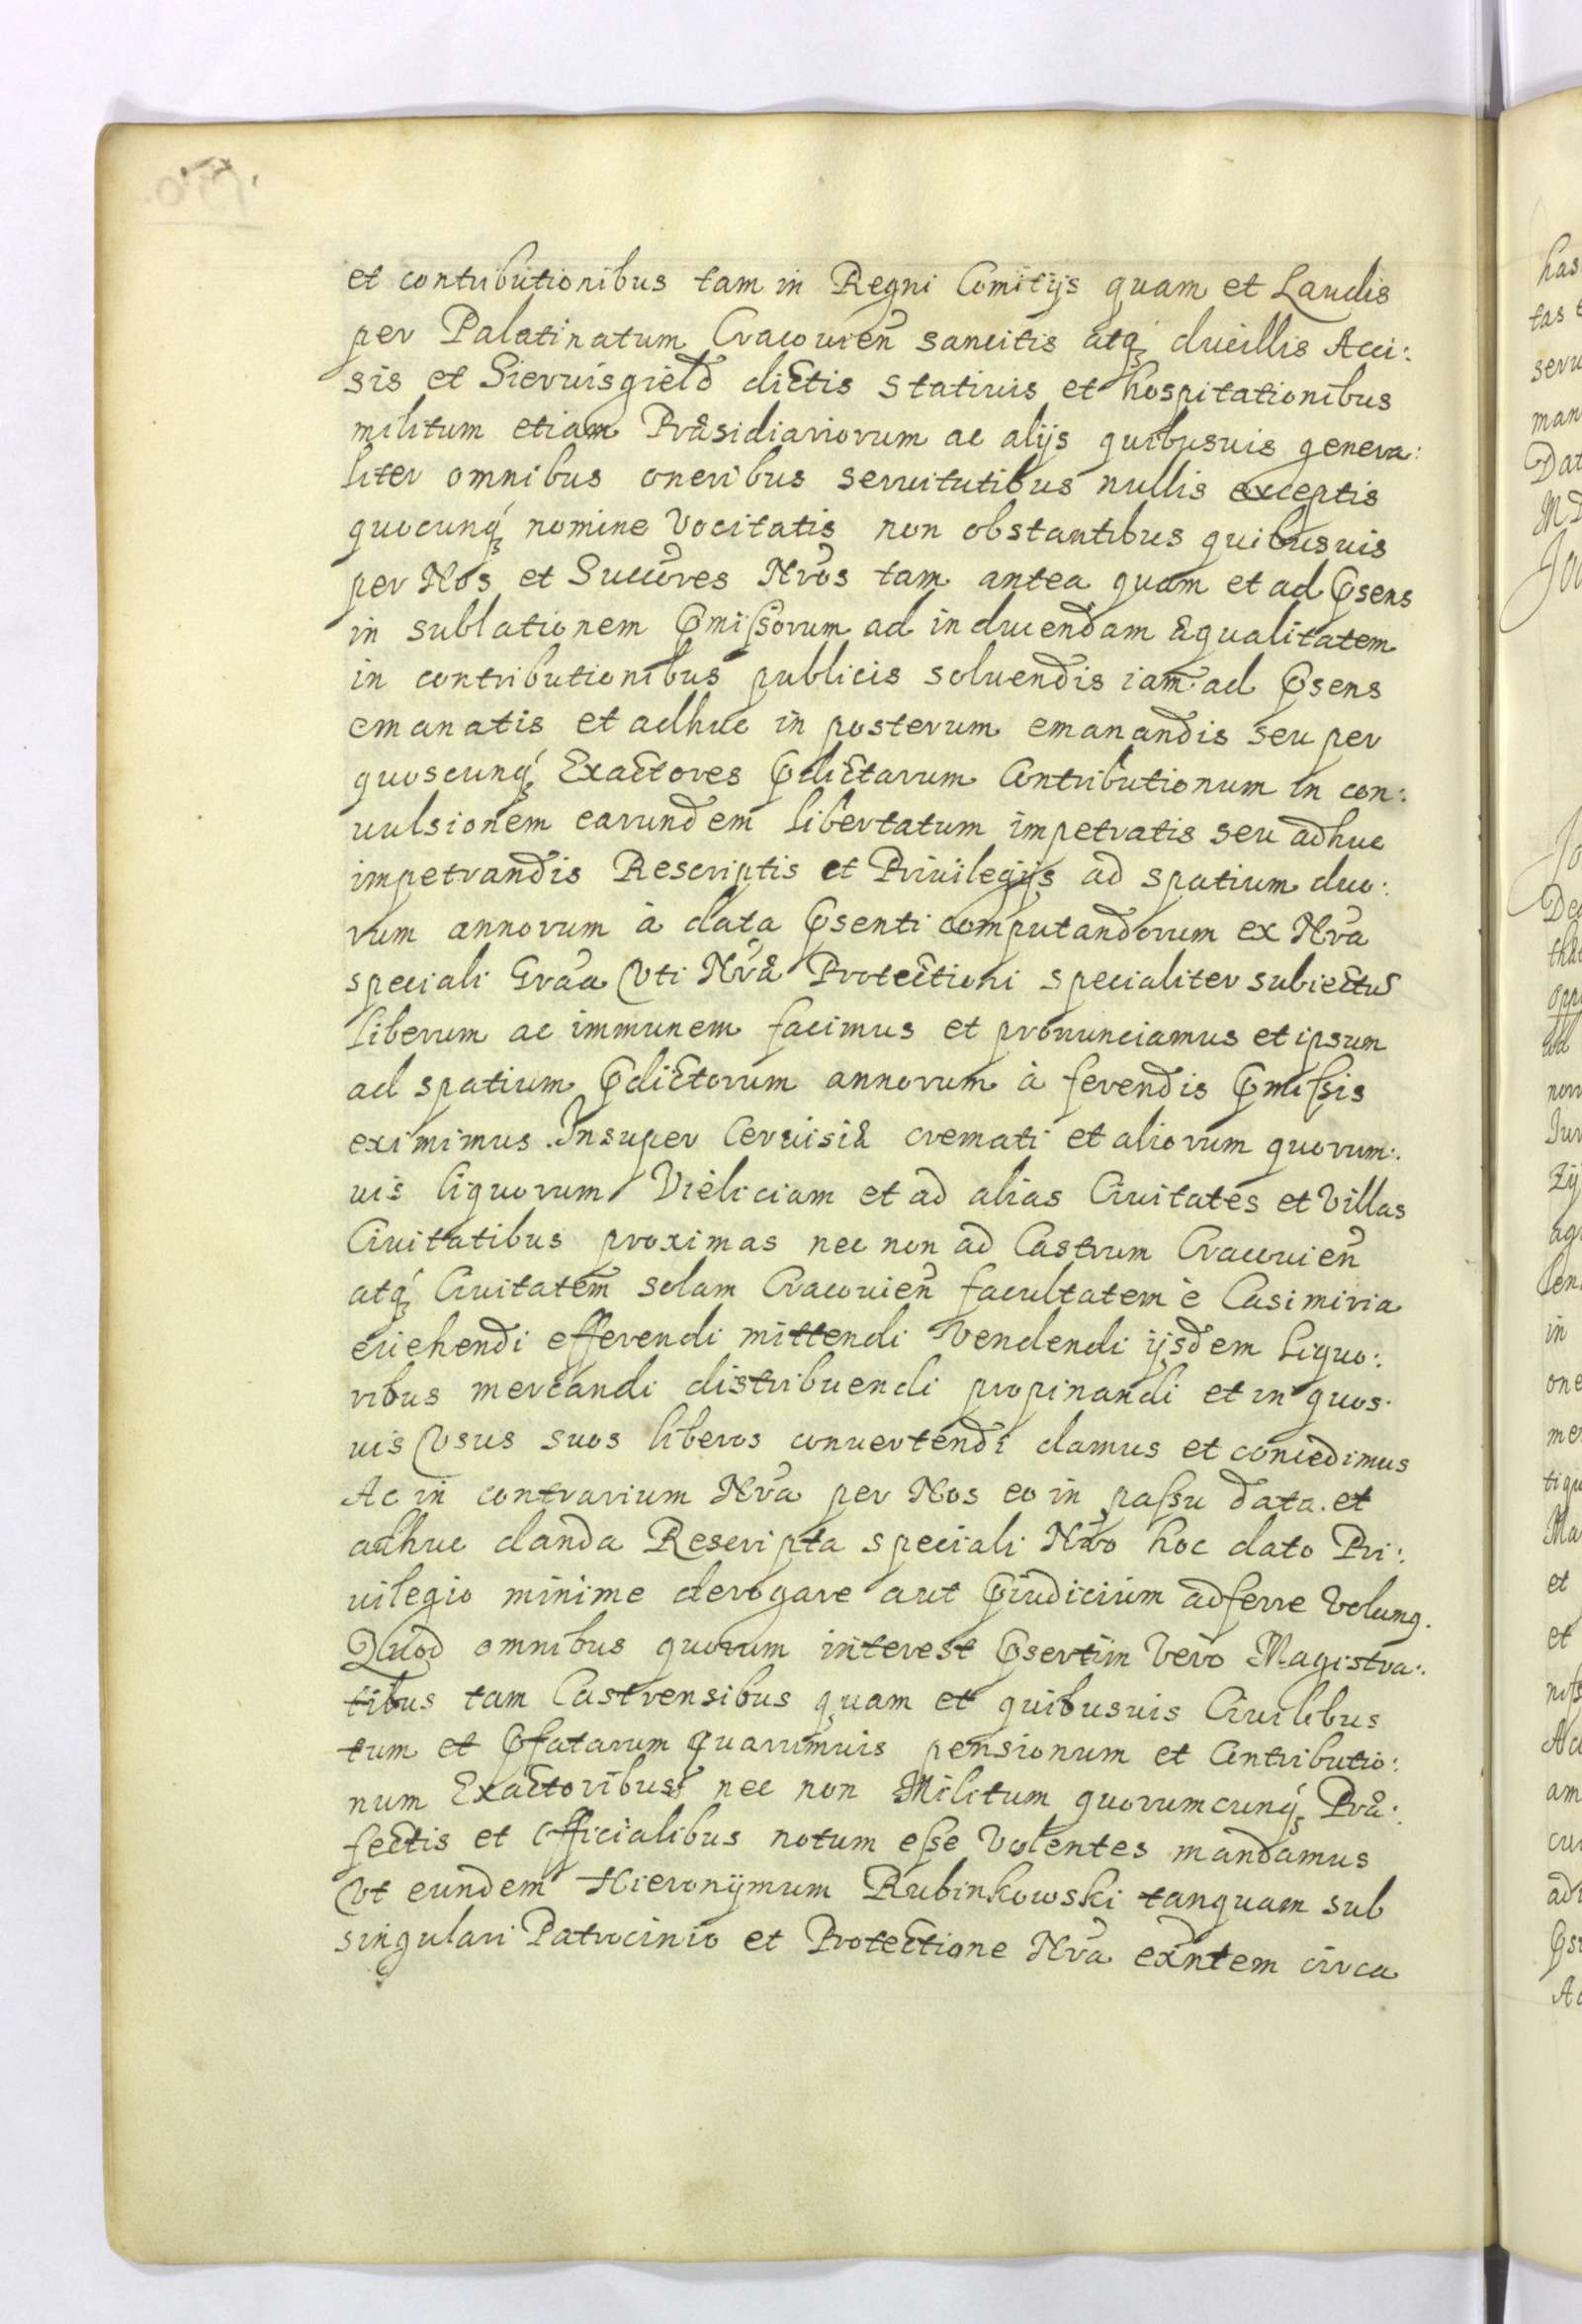 et contributionibus tam in Regni Comitijs quam et Laudis
per Palatinatum Cracouien̄ sancitis atq́ ducillis Acci:
sis et Siervisgield dictis stativis et hospitationibus
militum etiam Præsidiariorum ac alijs quibusuis genera:
liter omnibus oneribus seruitutibus nullis exceptis
quocunq́ nomine vocitatis non obstantibus quibusuis
per Nos et Succ̄res Nr̄os tam antea quam et ad p̄sens
in sublationem p̄miſsorum ad inducendam æqualitatem
in contributionibus publicis soluendis iam ad p̄sens
emanatis et adhuc in posterum emanandis seu per
quoscunq́ Exactores p̄dictarum Contributionum in con:
uulsionem earundem libertatum impetratis seu adhuc
impetrandis Rescriptis et Priuilegijs ad spatium duo:
rum annorum à data p̄senti computandorum ex Nr̄a
speciali Gra̅a vti Nr̄æ Protectioni specialiter subiectus
liberum ac immunem facimus et pronunciamus et ipsum
ad spatium p̄dictorum annorum à ferendis p̄miſsis
eximimus. Insuper Ceruisiæ cremati et aliorum quorum:
uis liquorum Vieliciam et ad alias Ciuitates et Villas
Ciuitatibus proximas nec non ad Castrum Cracouien̄
atq́ Ciuitatem solam Cracouien̄ facultatem è Casimiria
euehendi efferendi mittendi vendendi ijsdem liquo:
ribus mercandi distribuendi propinandi et in quos:
uis vsus suos liberos conuertendi damus et concedimus
Ac in contrarium Nr̄a per Nos eo in paſsu data et
adhuc danda Rescripta speciali Nr̄o hoc dato Pri:
uilegio minime derogare aut p̄iudicium adferre volumꝰ.
Quod omnibus quorum interest p̄sertim vero Magistra:
tibus tam Castrensibus quam et quibusuis Ciuilibus
tum et p̄fatarum quarumuis pensionum et Contributio:
num Exactoribus nec non Militum quorumcunq́ Præ:
fectis et Officialibus notum eſse volentes mandamus
vt eundem Hieronÿmum Rubinkowski tanquam sub
singulari Patrocinio et Protectione Nr̄a exn̄tem circa